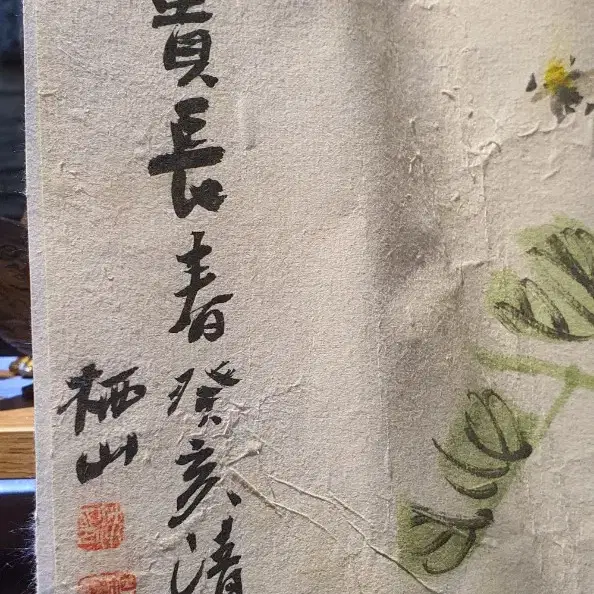 貴長春癸亥清
栖山